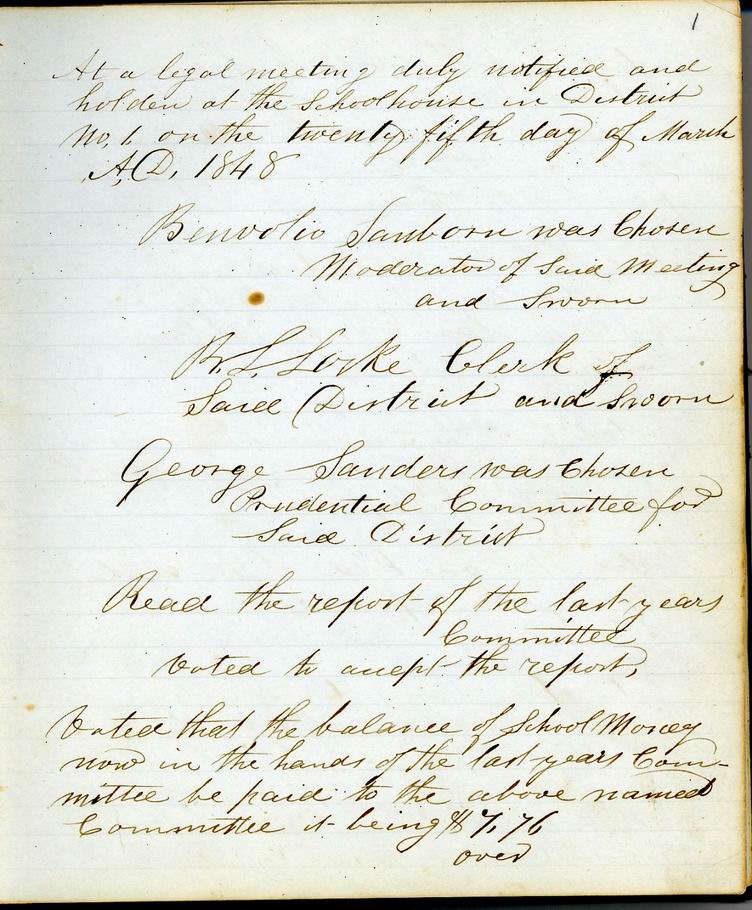 1
At a legal meeting duly notified and
holden at the Schoolhouse in District
No, 1. on the twenty fifth day of March
A,D, 1848
Benvolio Sanborn was Chosen
Moderator of Said Meeting
and Sworn
B. L. Locke Clerk of
Said District and Sworn
George Sanders was Chosen
Prudential Committee for
Said District
Read the report of the last years
Committee
Voted to accept the report,
Voted that the balance of School Money
now in the hands of the last years Com-
mittee be paid to the above named
Committee it being $ 7.76
over